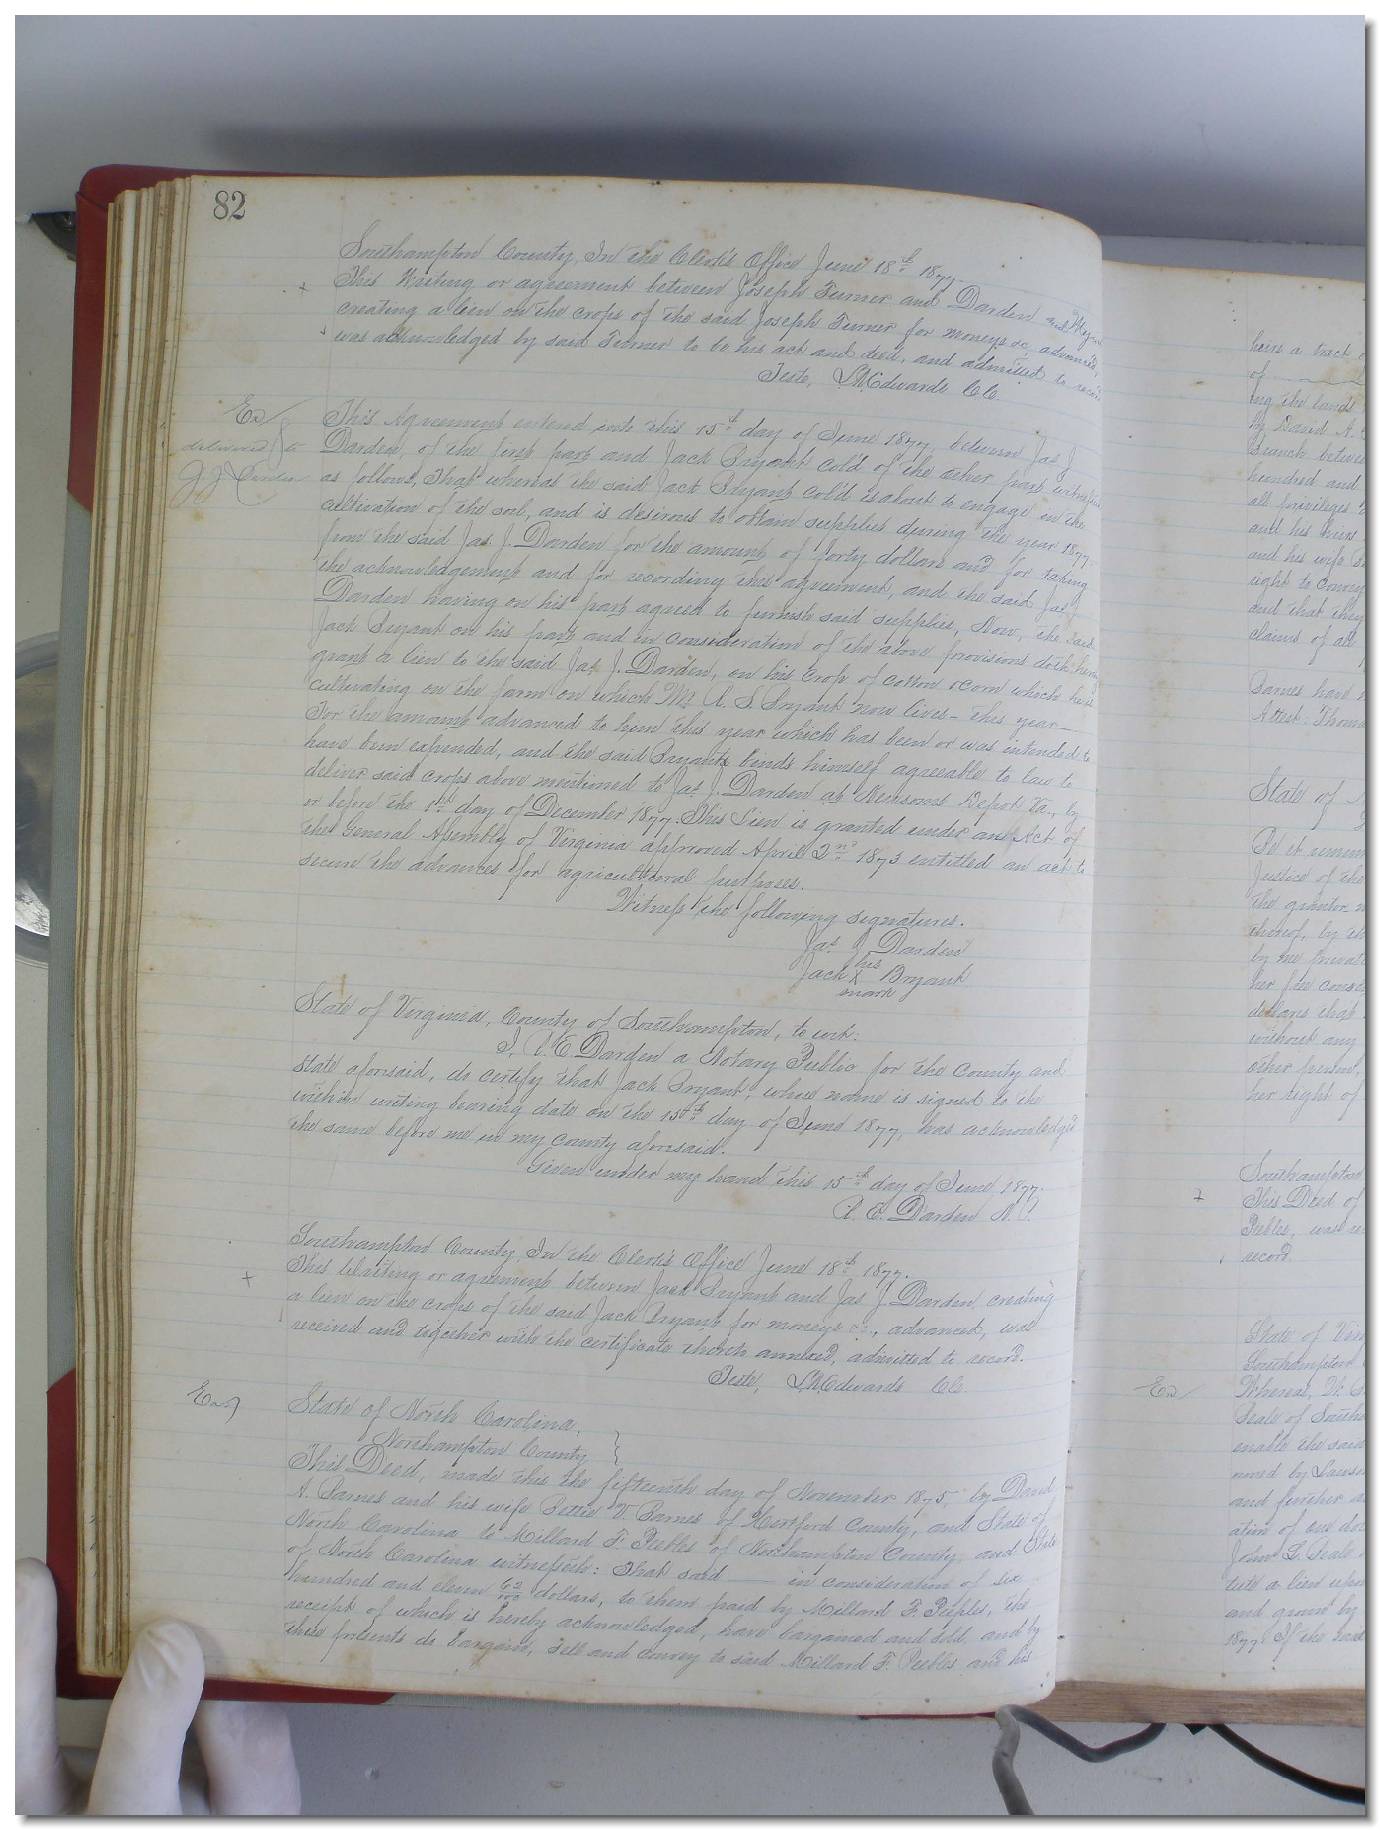 82
Southampton County, In the Clerk's Office June 18th 1877.
This Writing or agreement between Joseph Turner and Darden and
creating a lien on the crops of the said Joseph Turner for moneys &c, advanced,
was acknowledged by said Turner to be his act and deed, and admitted to record
Teste, L.R. Edwards C.C.
Ex
delivered to
J J Darden
This Agreement entered into this 15th day of June 1877, between Jas J
Darden, of the first part and Jack Bryant col'd of the other part witnesseth
as follows, That whereas the said Jack Bryant col'd is about to engage in the
cultivation of the soil, and is desirous to obtain supplies during the year 1877
from the said Jas. J. Darden for the amount of forty dollars and for taking
the acknowledgement and for recording this agreement, and the said Jas J
Darden having on his part agreed to furnish said supplies, Now, the said
Jack Bryant on his part and in consideration of the above provisions doth hereby
grant a lien to the said Jas J. Darden, on his crop of cotton & corn which he is
cultivating on the farm on which Mr R. S. Bryant now lives - this year -
For the amount advanced to him this year which has been or was intended to
have been expended, and the said Bryant binds himself agreeable to law to
deliver said crops above mentioned to Jas J. Darden at Newsoms Depot Va., by
or before the 1st day of December 1877. This Lien is granted under an Act of
the General Assembly of Virginia approved April 2nd 1873 entitled an act to
secure the advances for agricultural purposes.
Witness the following signatures.
Jas J. Darden
his
Jack X Bryant
mark
State of Virginia, County of Southampton, to wit:
I, R. E. Darden a Notary Public for the County and
State aforesaid, do certify that Jack Bryant, whose name is signed to the
within writing bearing date on the 15th day of June 1877, has acknowledged
the same before me in my County aforesaid.
Given under my hand this 15th day of June 1877.
R. E. Darden N. P.
Southampton County, In the Clerk's Office June 18th 1877.
+ This Writing or agreement between Jack Bryant and Jas J. Darden, creating
a lien on the crops of the said Jack Bryant for moneys &c., advanced, was
received and together with the certificate thereto annexed, admitted to record.
Teste, L.R. Edwards C.C.
Ex
State of North Carolina,
Northampton County }
This Deed, made this the fifteenth day of November 1875, by David
A. Barnes and his wife Bettie V. Barnes of Hertford County, and State of
North Carolina to Millard F. Peebles of Northampton County, and State
of North Carolina witnesseth: That said in consideration of six
hundred and eleven 62/100 dollars, to them paid by Millard F. Peebles, the
receipt of which is hereby acknowledged, have bargained and sold, and by
these presents do bargain, sell and convey to said Millard F. Peebles and his
heirs a tract
of
ing the lands
by David A.
Branch between
hundred and
all privileges
and his heirs
and his wife
right to convey
and that they
claims of all
Barnes have
Attest: Thomas
State of
Be it remem
Justice of the
the grantor
thereof, by
by me privat
her free cons
declares that
without any
other person,
her right of
Southampton
This Deed of
Peebles, was re
record.
State of Vir
Southampton
Ex
Whereas, W.
Beale of South
enable the said
and further
ation of one do
John L. Beale
tute a lien upon
and grown by
1877. If the said